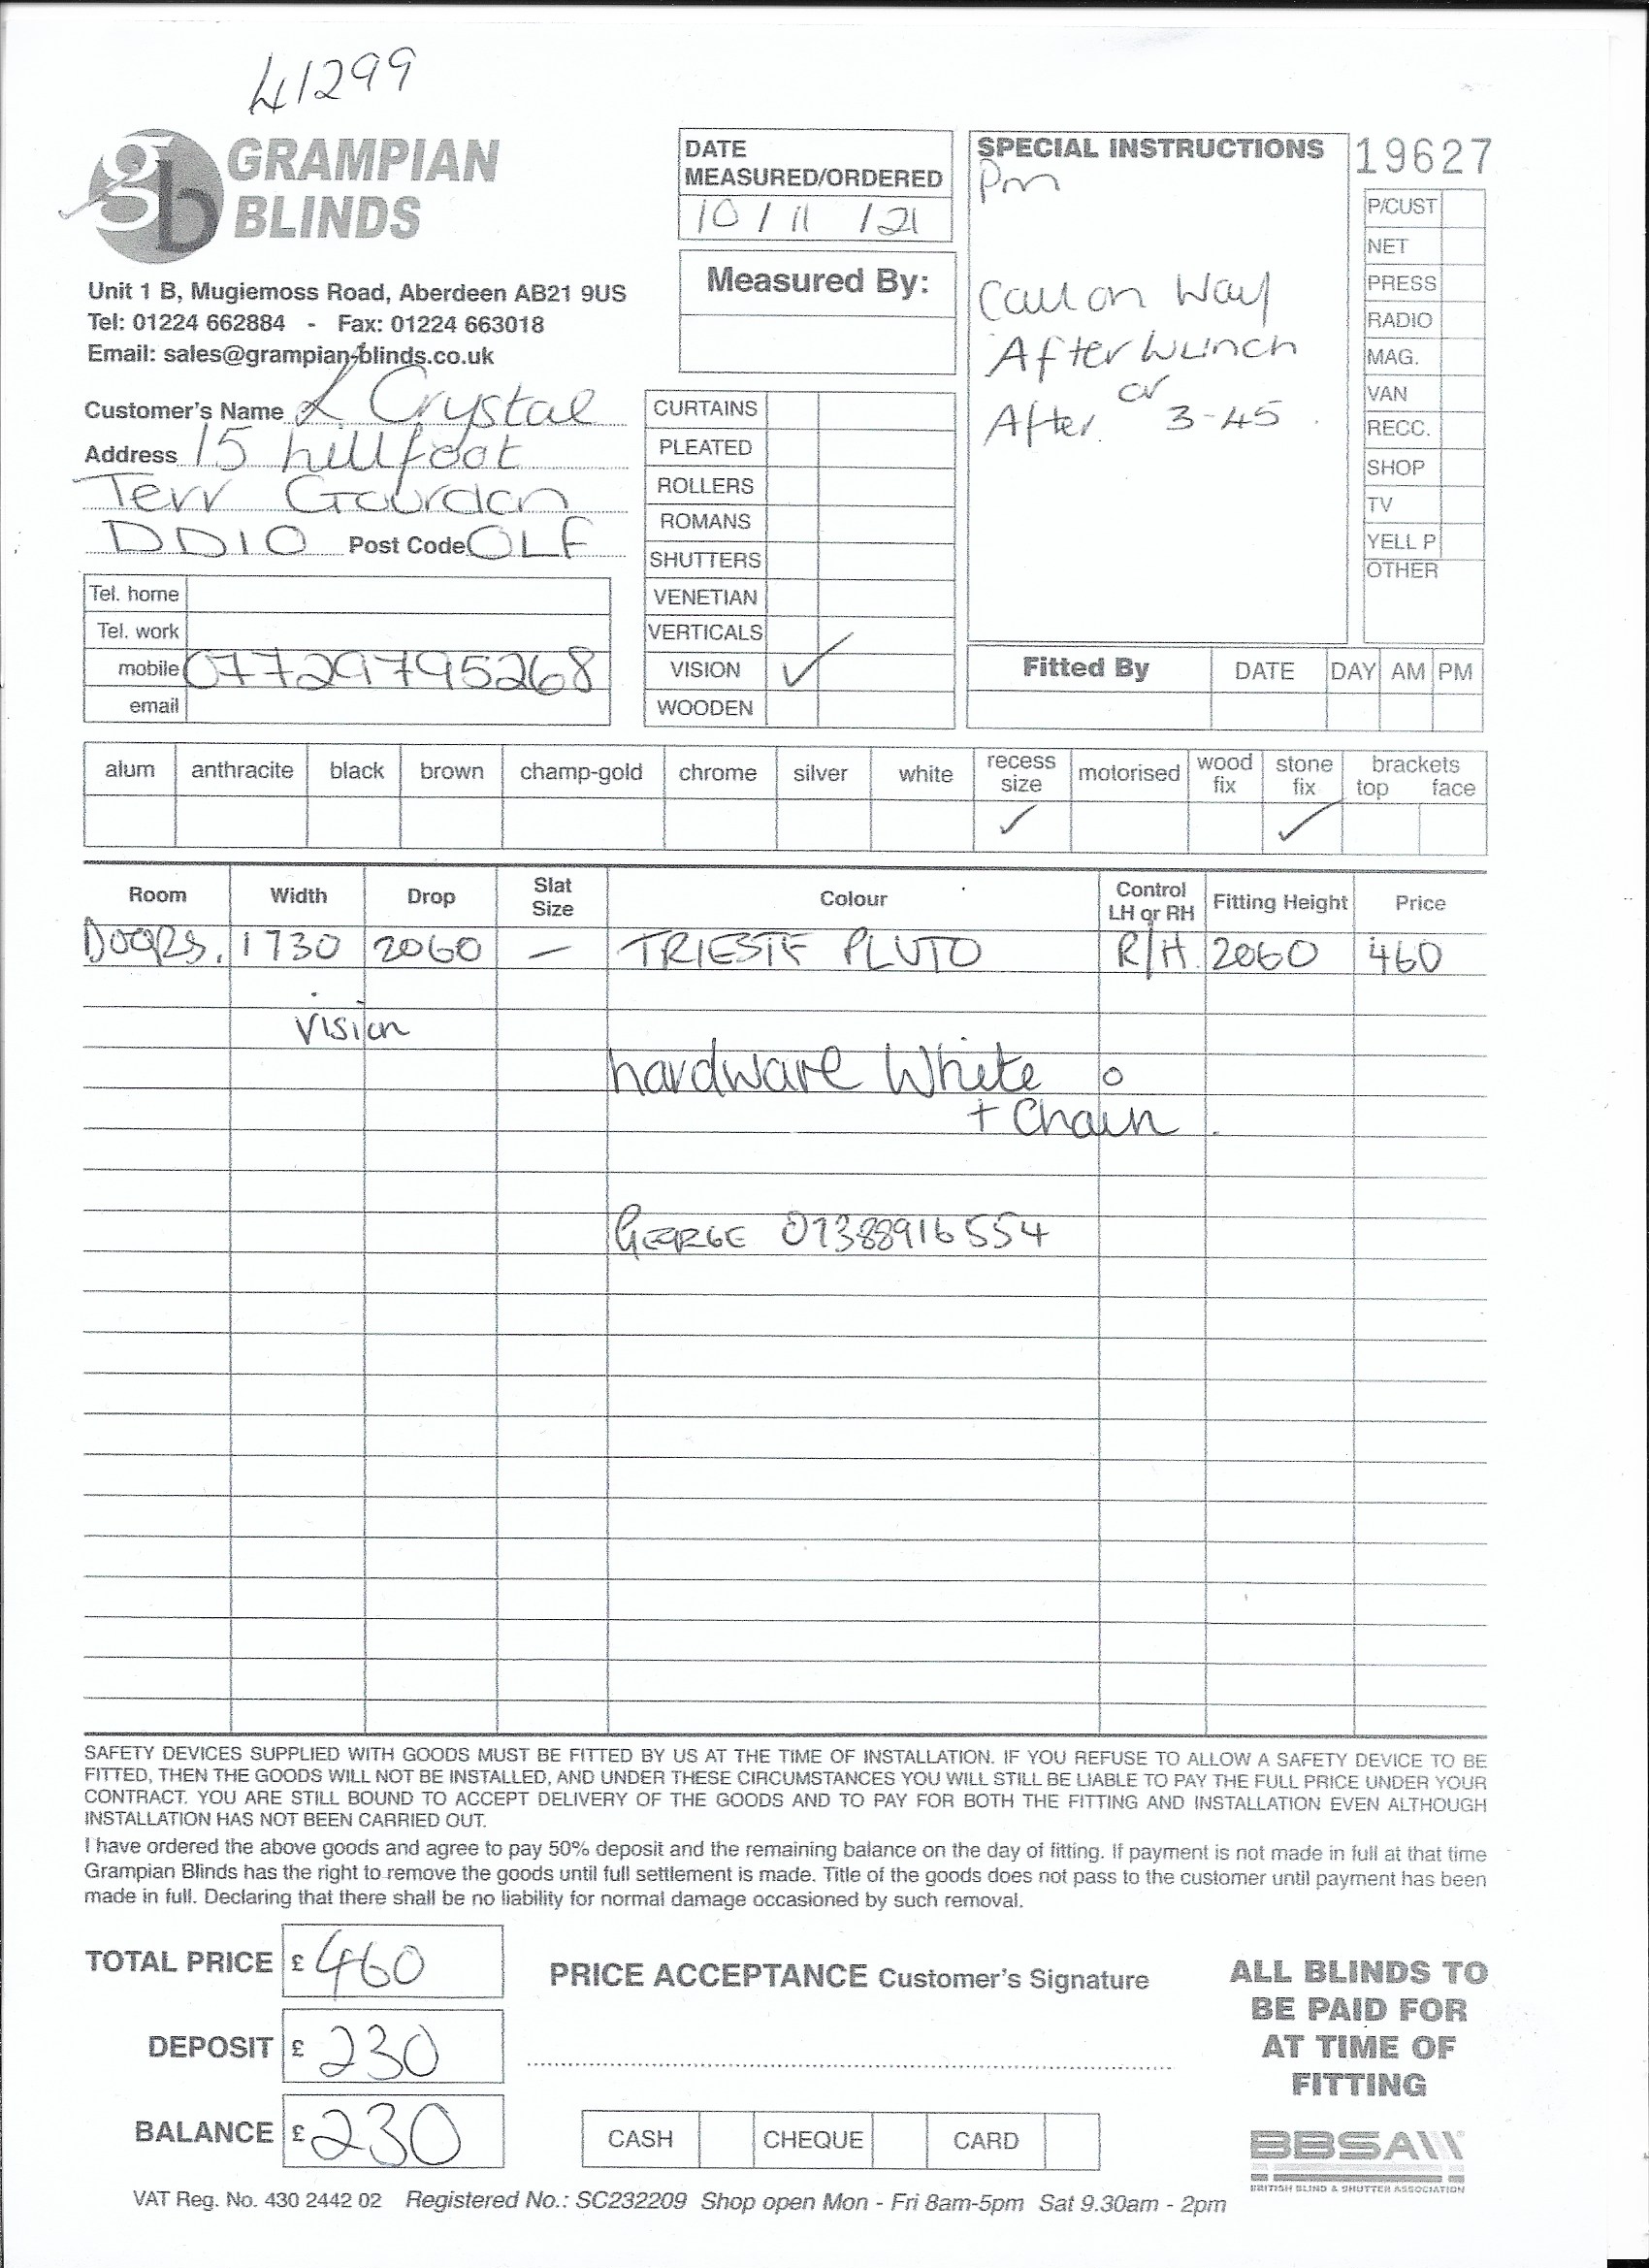 41299
GRAMPIAN
BLINDS
Unit 1 B, Mugiemoss Road, Aberdeen AB21 9US
Tel: 01224 662884 - Fax: 01224 663018
Email: sales@grampian-blinds.co.uk
Customer's Name L Crystal
Address 15 hillfoot
Terr Gourdon
DD10 Post Code OLF
Tel. home
Tel. work
mobile 07729795268
email
DATE
MEASURED/ORDERED
10 / 11 / 21
Measured By:
CURTAINS
PLEATED
ROLLERS
ROMANS
SHUTTERS
VENETIAN
VERTICALS
VISION ✓
WOODEN
SPECIAL INSTRUCTIONS
Pm
Call on Way
After Lunch
or
After 3-45
19627
P/CUST
NET
PRESS
RADIO
MAG.
VAN
RECC.
SHOP
TV
YELL P
OTHER
Fitted By DATE DAY AM PM
alum anthracite black brown champ-gold chrome silver white recess size motorised wood fix stone fix brackets top face
✓ ✓
Room Width Drop Slat Size Colour Control LH or RH Fitting Height Price
DOORS. 1730 2060 – TRIESTE PLUTO R/H 2060 460
vision
hardware White o
+ Chain
GEORGE 07388916554
SAFETY DEVICES SUPPLIED WITH GOODS MUST BE FITTED BY US AT THE TIME OF INSTALLATION. IF YOU REFUSE TO ALLOW A SAFETY DEVICE TO BE
FITTED, THEN THE GOODS WILL NOT BE INSTALLED, AND UNDER THESE CIRCUMSTANCES YOU WILL STILL BE LIABLE TO PAY THE FULL PRICE UNDER YOUR
CONTRACT. YOU ARE STILL BOUND TO ACCEPT DELIVERY OF THE GOODS AND TO PAY FOR BOTH THE FITTING AND INSTALLATION EVEN ALTHOUGH
INSTALLATION HAS NOT BEEN CARRIED OUT.
I have ordered the above goods and agree to pay 50% deposit and the remaining balance on the day of fitting. If payment is not made in full at that time
Grampian Blinds has the right to remove the goods until full settlement is made. Title of the goods does not pass to the customer until payment has been
made in full. Declaring that there shall be no liability for normal damage occasioned by such removal.
TOTAL PRICE £ 460
DEPOSIT £ 230
BALANCE £ 230
PRICE ACCEPTANCE Customer's Signature
CASH CHEQUE CARD
ALL BLINDS TO
BE PAID FOR
AT TIME OF
FITTING
BBSA
BRITISH BLIND & SHUTTER ASSOCIATION
VAT Reg. No. 430 2442 02 Registered No.: SC232209 Shop open Mon - Fri 8am-5pm Sat 9.30am - 2pm